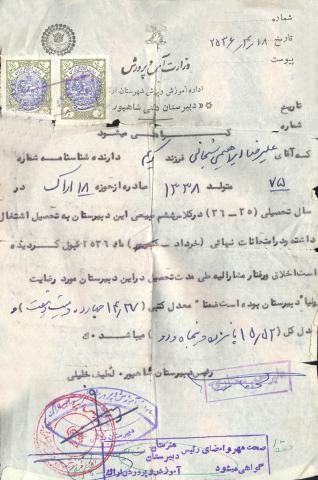 شماره
تاریخ ۲۵۳۶/۴/۱۸
پیوست
وزارت آموزش و پرورش
اداره آموزش و پرورش شهرستان اراک
دبیرستان ملی شاهپور
تاریخ
شماره
گواهی میشود
که آقای علیرضا ابراهیمی فرزند کریم دارنده شناسنامه شماره
۷۵ متولد ۱۳۳۸ صادره از حوزه ۱۸ اراک در
سال تحصیلی (۳۵-۳۶) در کلاس ششم طبیعی این دبیرستان به تحصیل اشتغال
داشته و در امتحانات نهائی (خرداد) ماه ۲۵۳۶ قبول گردیده
است اخلاق و رفتار مشارالیه طی مدت تحصیل در این دبیرستان مورد رضایت
اولیاء دبیرستان بوده است ضمنا" معدل کتبی (۱۴/۲۷ چهارده و بیست و هفت) و
معدل کل (۱۵/۵۲ پانزده و پنجاه و دو) میباشد
رئیس دبیرستان شاهپور - لطیف خلیلی
صحت مهر و امضای رئیس
هنرستان
دبیرستان
گواهی میشود
آموزش و پرورش اراک